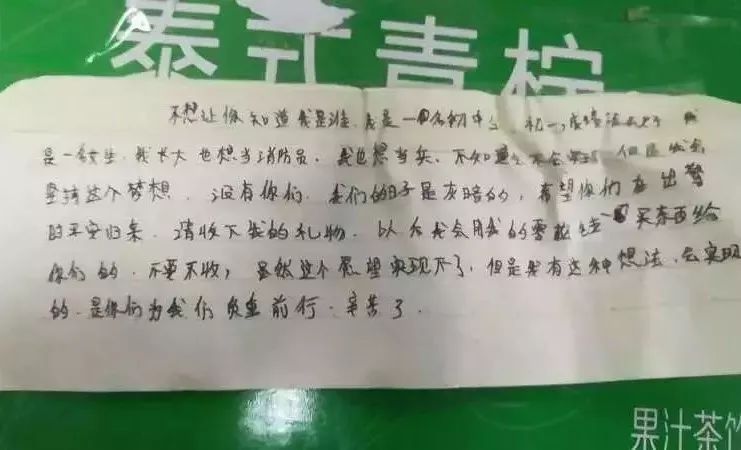 泰式青柠
不想让你知道我是谁，我是一名初中生，初一，成绩 我
是一女生，我长大也想当消防员，我也想当兵，不知道会不会实现 但
坚持这个梦想，没有你们，我们的日子是灰暗的，希望你们在出警
时平安归来，请收下我的礼物，以后我会用我的零花钱 买东西给
你们的，不要不收，虽然这个愿望实现不了，但是我有这种想法，会实现
的，是你们为我们负重前行，辛苦了。
果汁茶饮